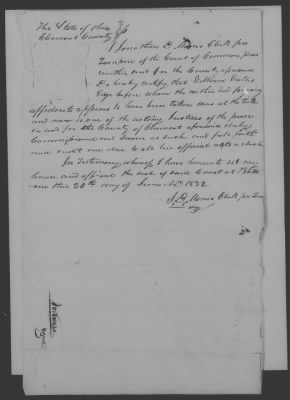 The State of Ohio
Clermont County
I Jonathan D. Morris Clerk pro
Tempore of the Court of Common pleas
within and for the County aforesaid
Do hereby certify that William
Esqr before whom the within and foregoing
affidavit appears to have been taken was at the
and now is one of the acting Justices of the peace
in and for the County of Clermont aforesaid duly
Commissioned and Sworn as such and full faith
and credit are due to all his official acts as such
In Testimony whereof I have hereunto set my
hand and affixed the seal of said Court at
this 20th day of June AD 1832
J. D. Morris Clerk pro Tem